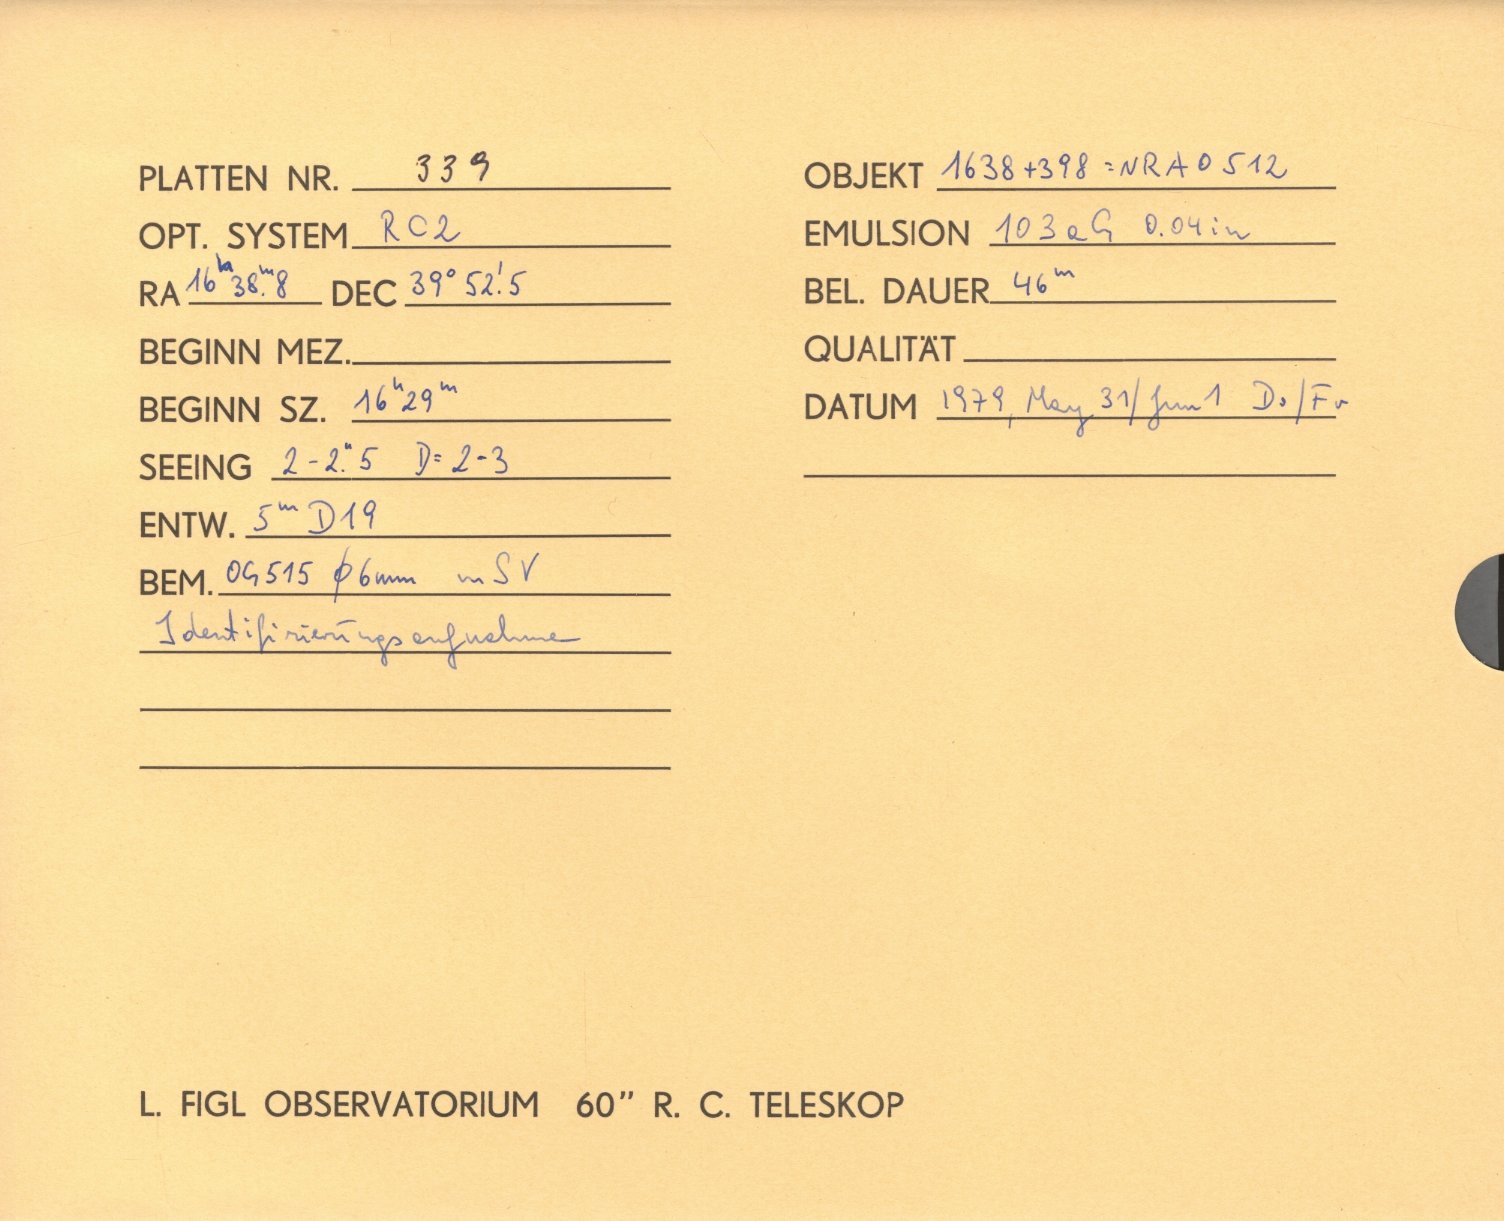 PLATTEN NR. 339
OPT. SYSTEM RC2
RA 16h 38m.8 DEC 39° 52'.5
BEGINN MEZ.
BEGINN SZ. 16h 29m
SEEING 2-2".5 D=2-3
ENTW. 5m D19
BEM. OG515 ϕ6mm m SV
Identifizierungsaufnahme
OBJEKT 1638+398 = NRAO 512
EMULSION 103aG 0.04in
BEL. DAUER 46m
QUALITÄT
DATUM 1979, May 31/Jun 1 Do/Fr
L. FIGL OBSERVATORIUM 60" R. C. TELESKOP